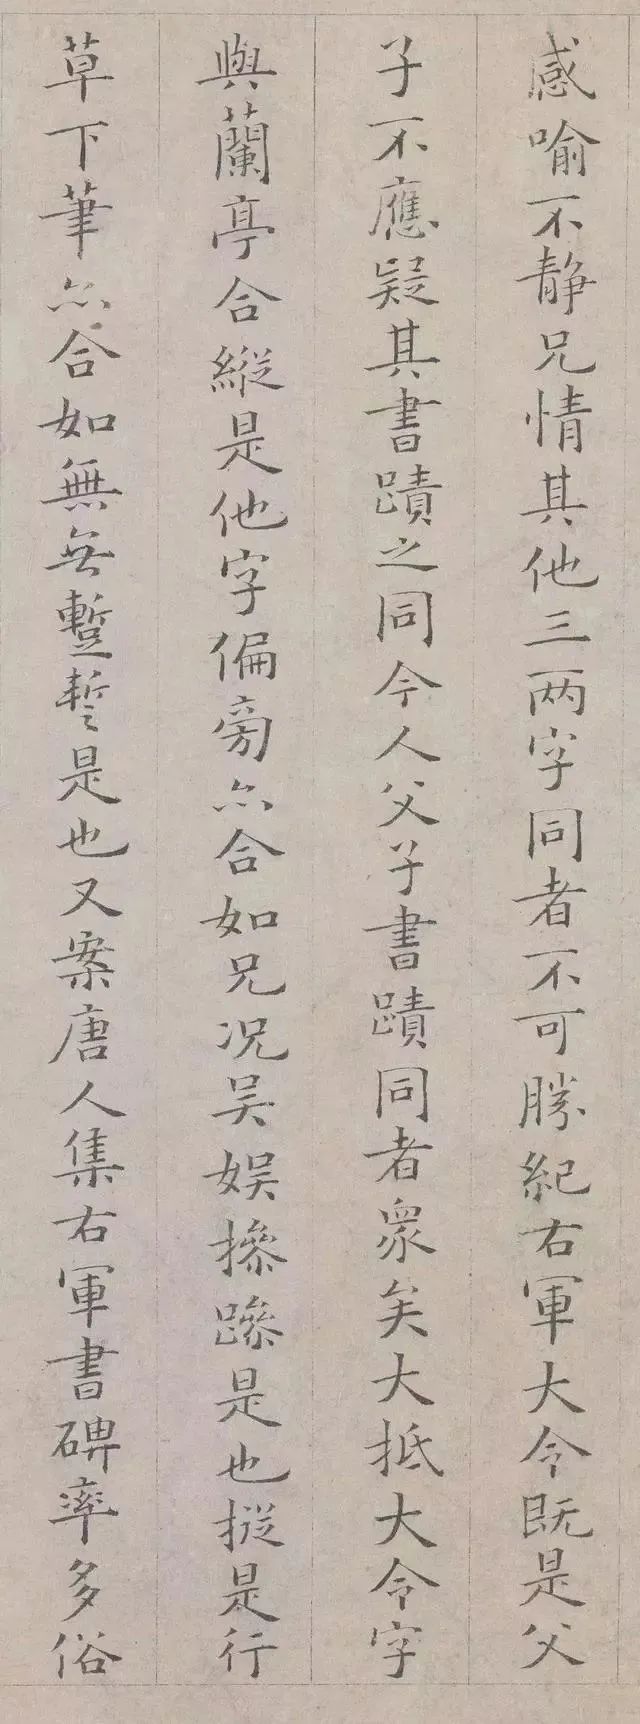 感喻不静兄情其他三两字同者不可勝紀右軍大令既是父
子不應疑其書蹟之同今人父子書蹟同者衆矣大抵大令字
與蘭亭合縱是他字偏旁亦合如兄况吴娱摻蹂是也摐是行
草下筆亦合如無无蹔誓是也又案唐人集右軍書碑率多俗